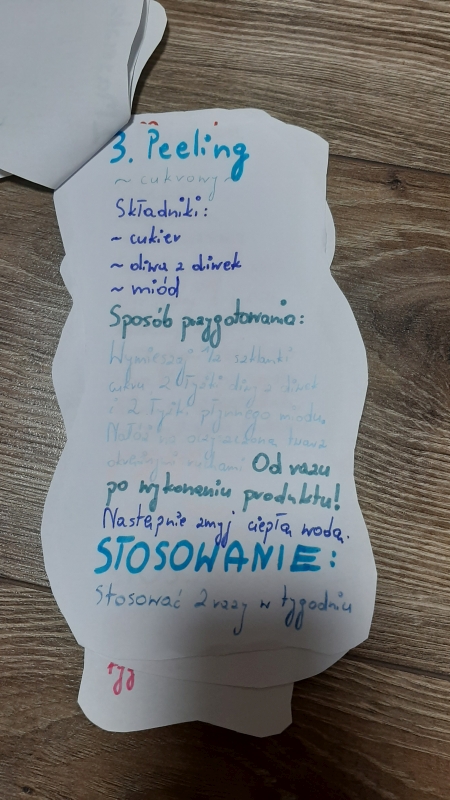 3. Peeling
~ cukrowy ~
Składniki:
~ cukier
~ oliwa z oliwek
~ miód
Sposób przygotowania:
Wymieszaj 1/2 szklanki
cukru 2 łyżki oliwy z oliwek
i 2 łyżki płynnego miodu.
Nałóż na oczyszczoną twarz
okrężnymi ruchami Od razu
po wykonaniu produktu!
Następnie zmyj ciepłą wodą.
STOSOWANIE:
Stosować 2 razy w tygodniu